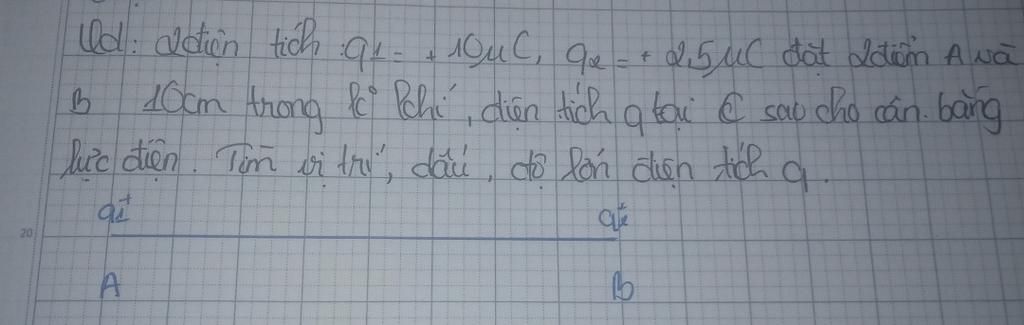 Vd: 2 điện tích q1 = + 10μC, q2 = + 2,5μC đặt 2 điểm A và
B 10cm trong k° khí, điện tích q tại C sao cho cân bằng
lực điện. Tìm vị trí, dấu, độ lớn điện tích q.
q1+ q2+
20
A B